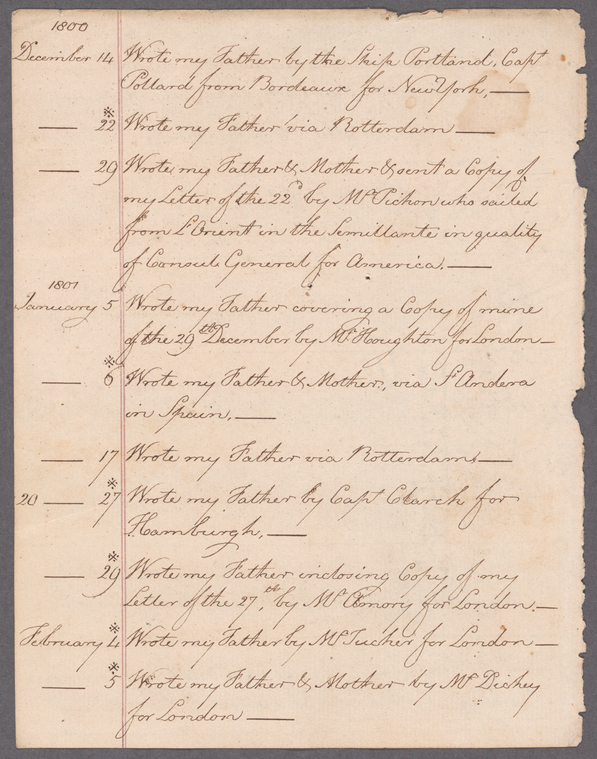 1800
December 14 Wrote my Father by the Ship Portland, Capt
Pollard from Bordeaux for New York, —
— 22 Wrote my Father via Rotterdam —
— 29 Wrote my Father & Mother & sent a Copy of
my Letter of the 22d by Mr Pichon who sailed
from L'Orient in the Semillante in quality
of Consul General for America. —
1801
January 5 Wrote my Father covering a Copy of mine
of the 29th December by Mr Houghton for London —
— 6 Wrote my Father & Mother, via St Andera
in Spain, —
— 17 Wrote my Father via Rotterdam —
20 — 27 Wrote my Father by Capt Clarch for
Hamburgh, —
— 29 Wrote my Father inclosing Copy of my
Letter of the 27th, by Mr Amory for London. —
February 4 Wrote my Father by Mr Tucker for London —
— 5 Wrote my Father & Mother by Mr Dickey
for London —